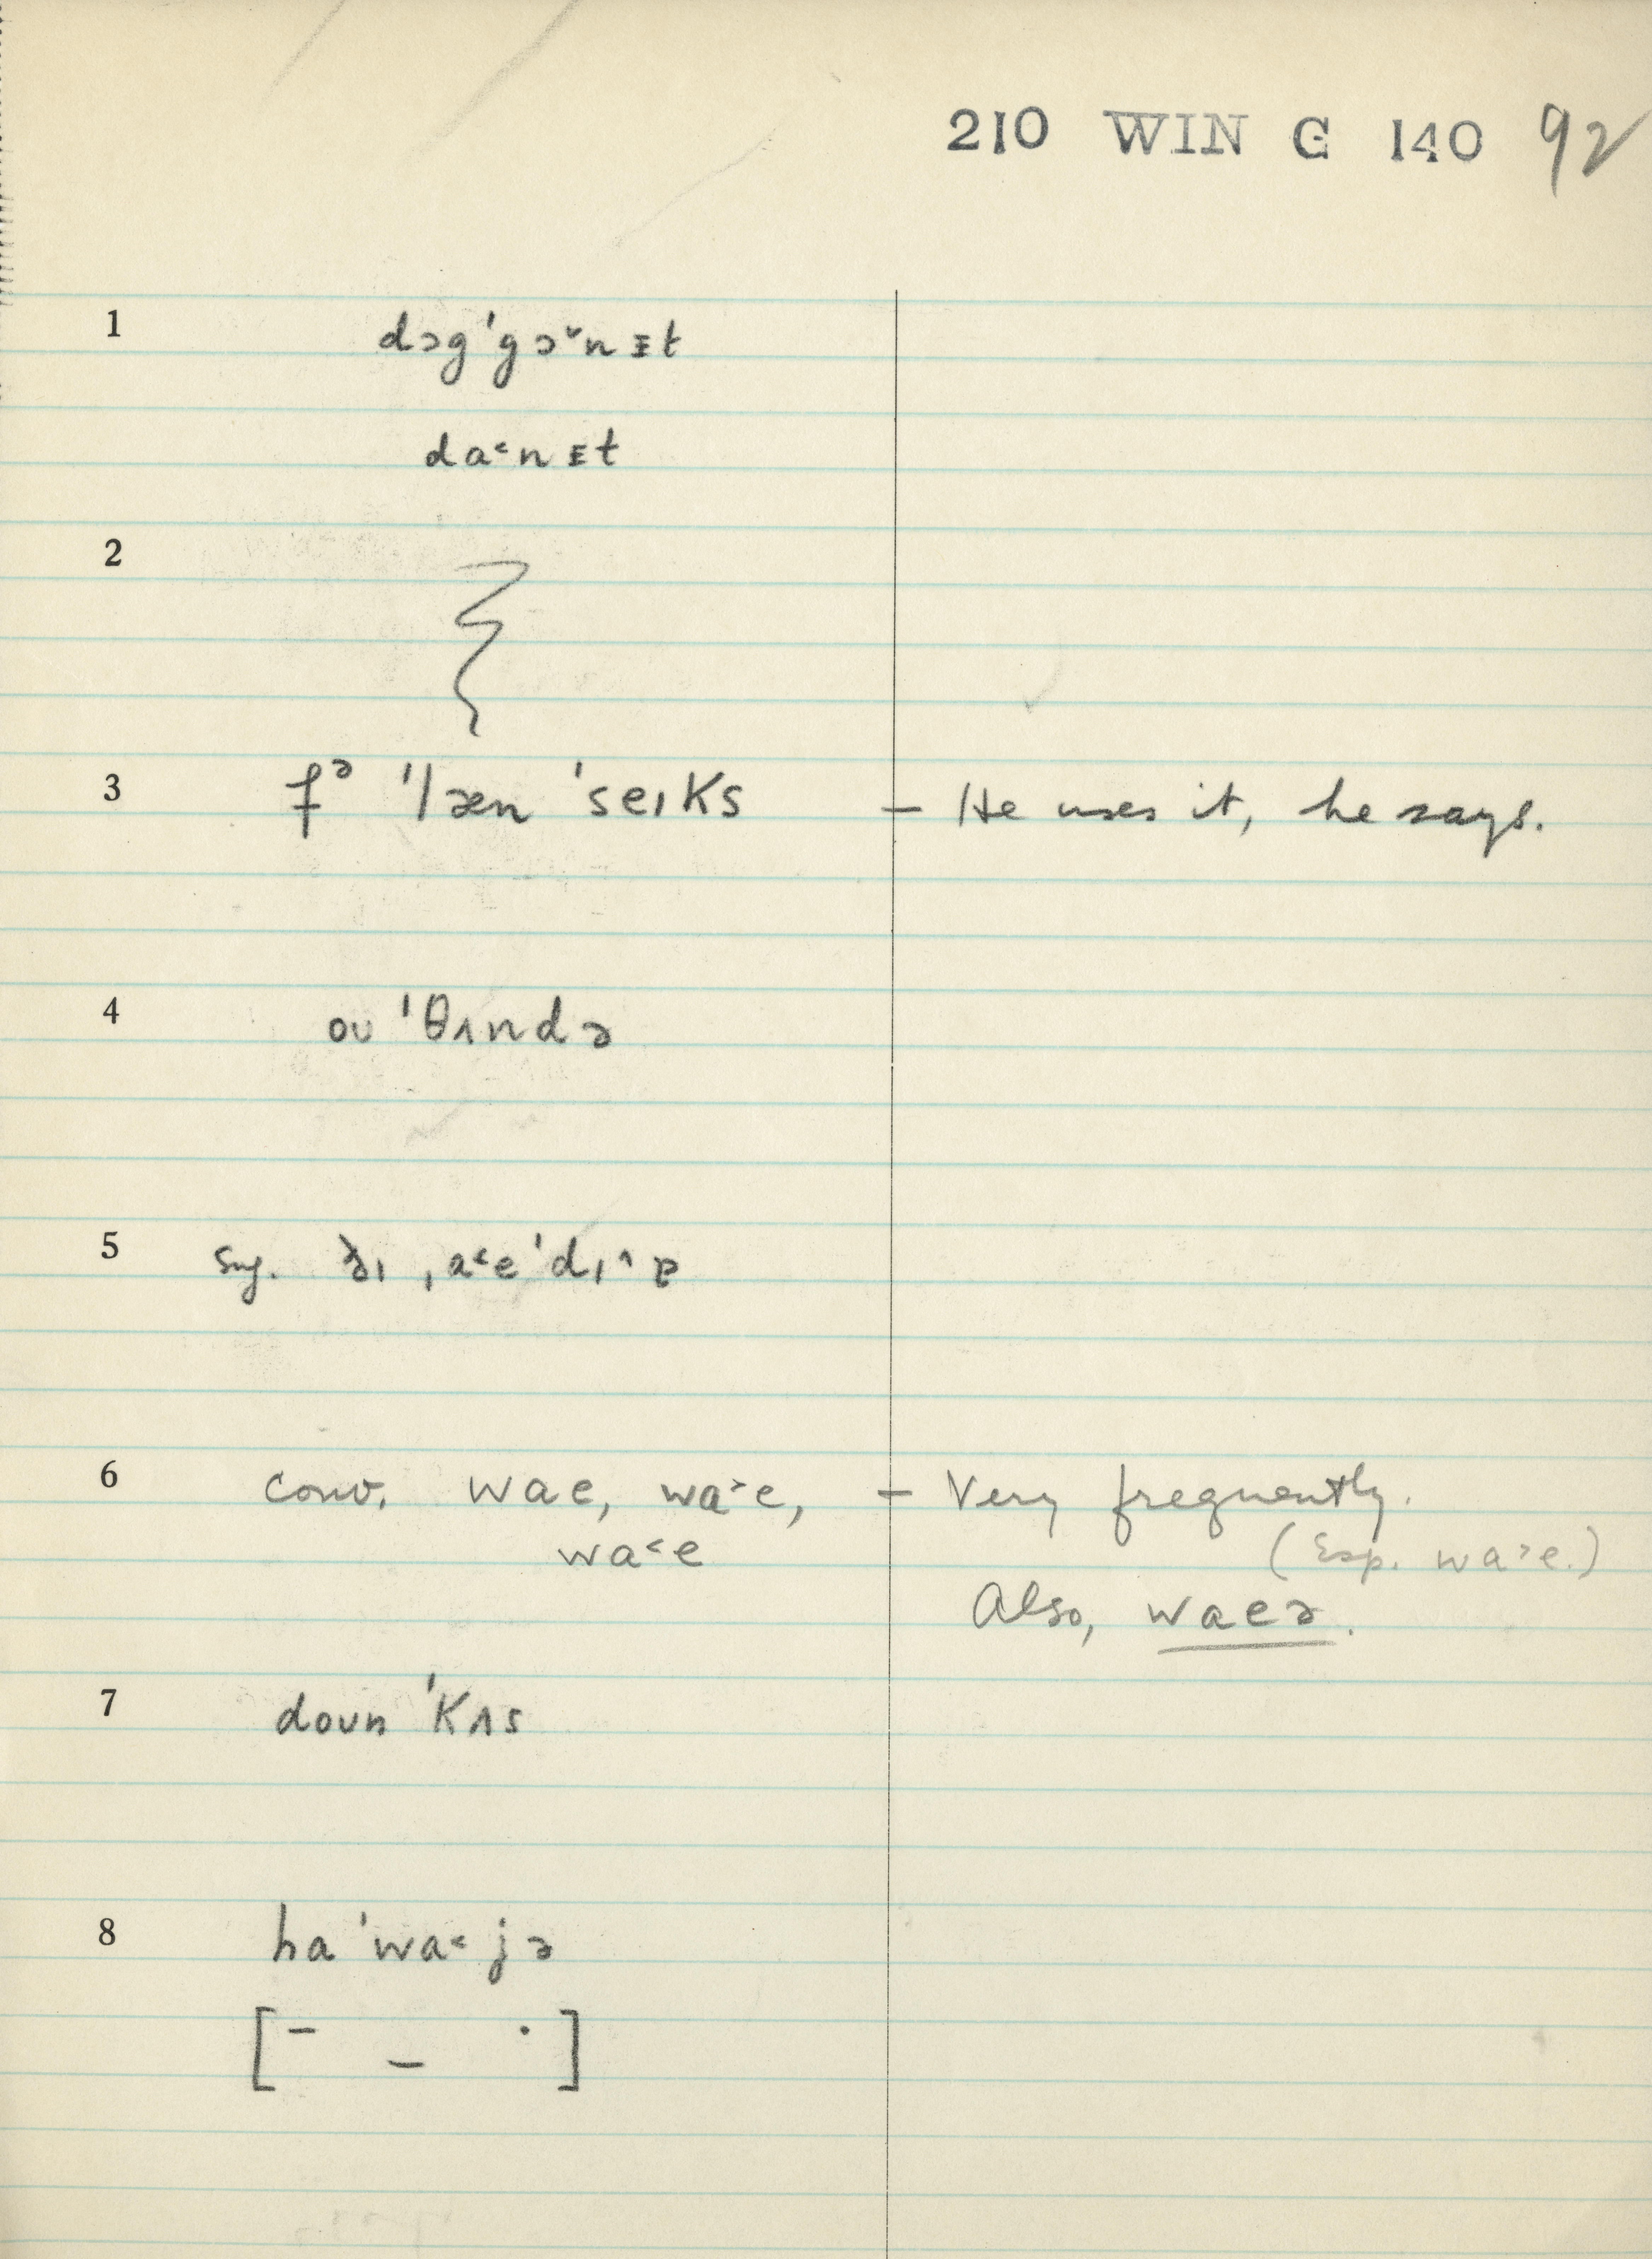 210 WIN G 140 92
1 dɔg'gɔ˅nɪt
da˂nɪt
2
3 fᵊ 'læn 'seɪks – He uses it, he says.
4 oʊ 'θʌndə
5 sug. ði ˌa˂e'dɪ˄ɐ
6 conv. wae, wa˃e, – Very frequently.
wa˂e (Esp. wa˃e.)
Also, waeə.
7 doʊn 'kʌs
8 ha 'wa˂jə
[– – ·]